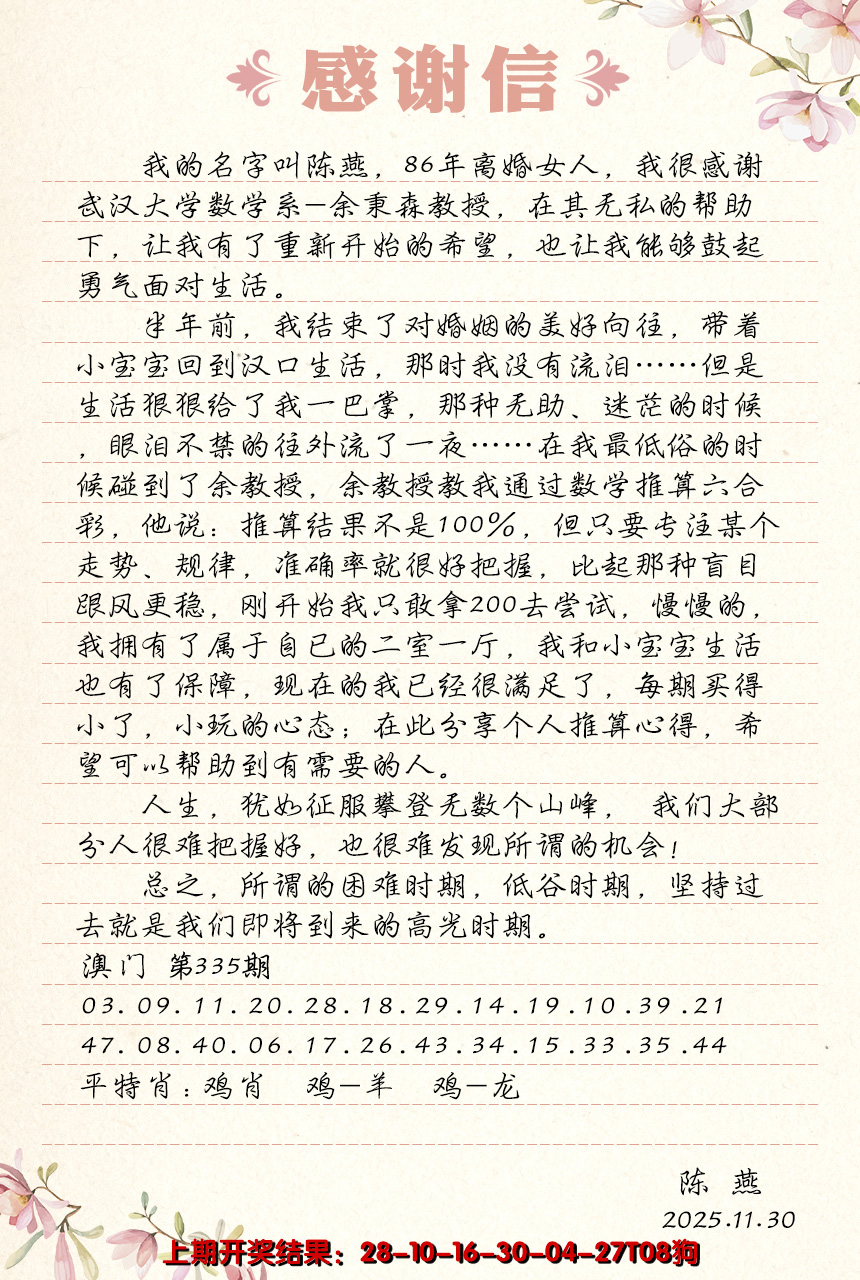 感谢信
我的名字叫陈燕，86年离婚女人，我很感谢
武汉大学数学系—余秉森教授，在其无私的帮助
下，让我有了重新开始的希望，也让我能够鼓起
勇气面对生活。
半年前，我结束了对婚姻的美好向往，带着
小宝宝回到汉口生活，那时我没有流泪……但是
生活狠狠给了我一巴掌，那种无助、迷茫的时候
，眼泪不禁的往外流了一夜……在我最低俗的时
候碰到了余教授，余教授教我通过数学推算六合
彩，他说：推算结果不是100%，但只要专注某个
走势、规律，准确率就很好把握，比起那种盲目
跟风更稳，刚开始我只敢拿200去尝试，慢慢的，
我拥有了属于自已的二室一厅，我和小宝宝生活
也有了保障，现在的我已经很满足了，每期买得
小了，小玩的心态；在此分享个人推算心得，希
望可以帮助到有需要的人。
人生，犹如征服攀登无数个山峰， 我们大部
分人很难把握好，也很难发现所谓的机会！
总之，所谓的困难时期，低谷时期，坚持过
去就是我们即将到来的高光时期。
澳门 第335期
03.09.11.20.28.18.29.14.19.10.39.21
47.08.40.06.17.26.43.34.15.33.35.44
平特肖：鸡肖 鸡—羊 鸡—龙
陈 燕
2025.11.30
上期开奖结果：28-10-16-30-04-27T08狗